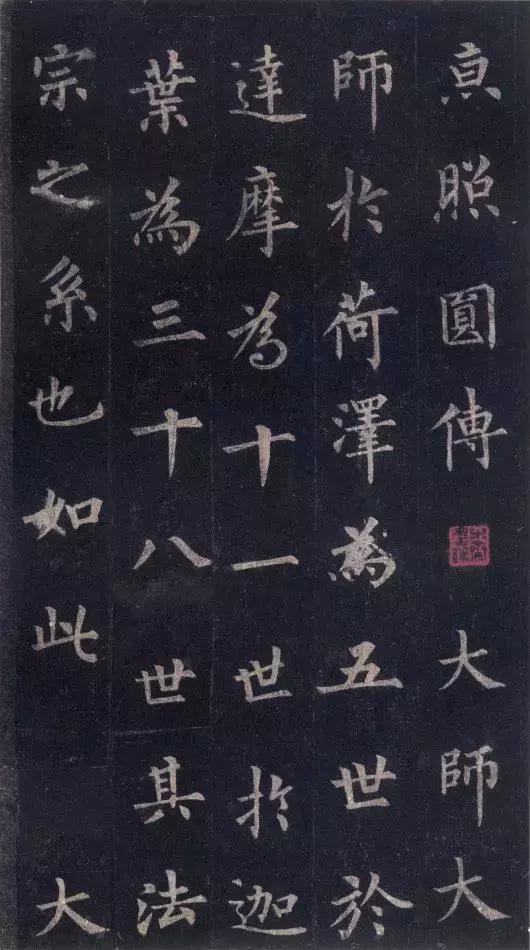 真照圓傳大師大
師於荷澤為五世於
達摩為十一世於迦
葉為三十八世其法
宗之系也如此大